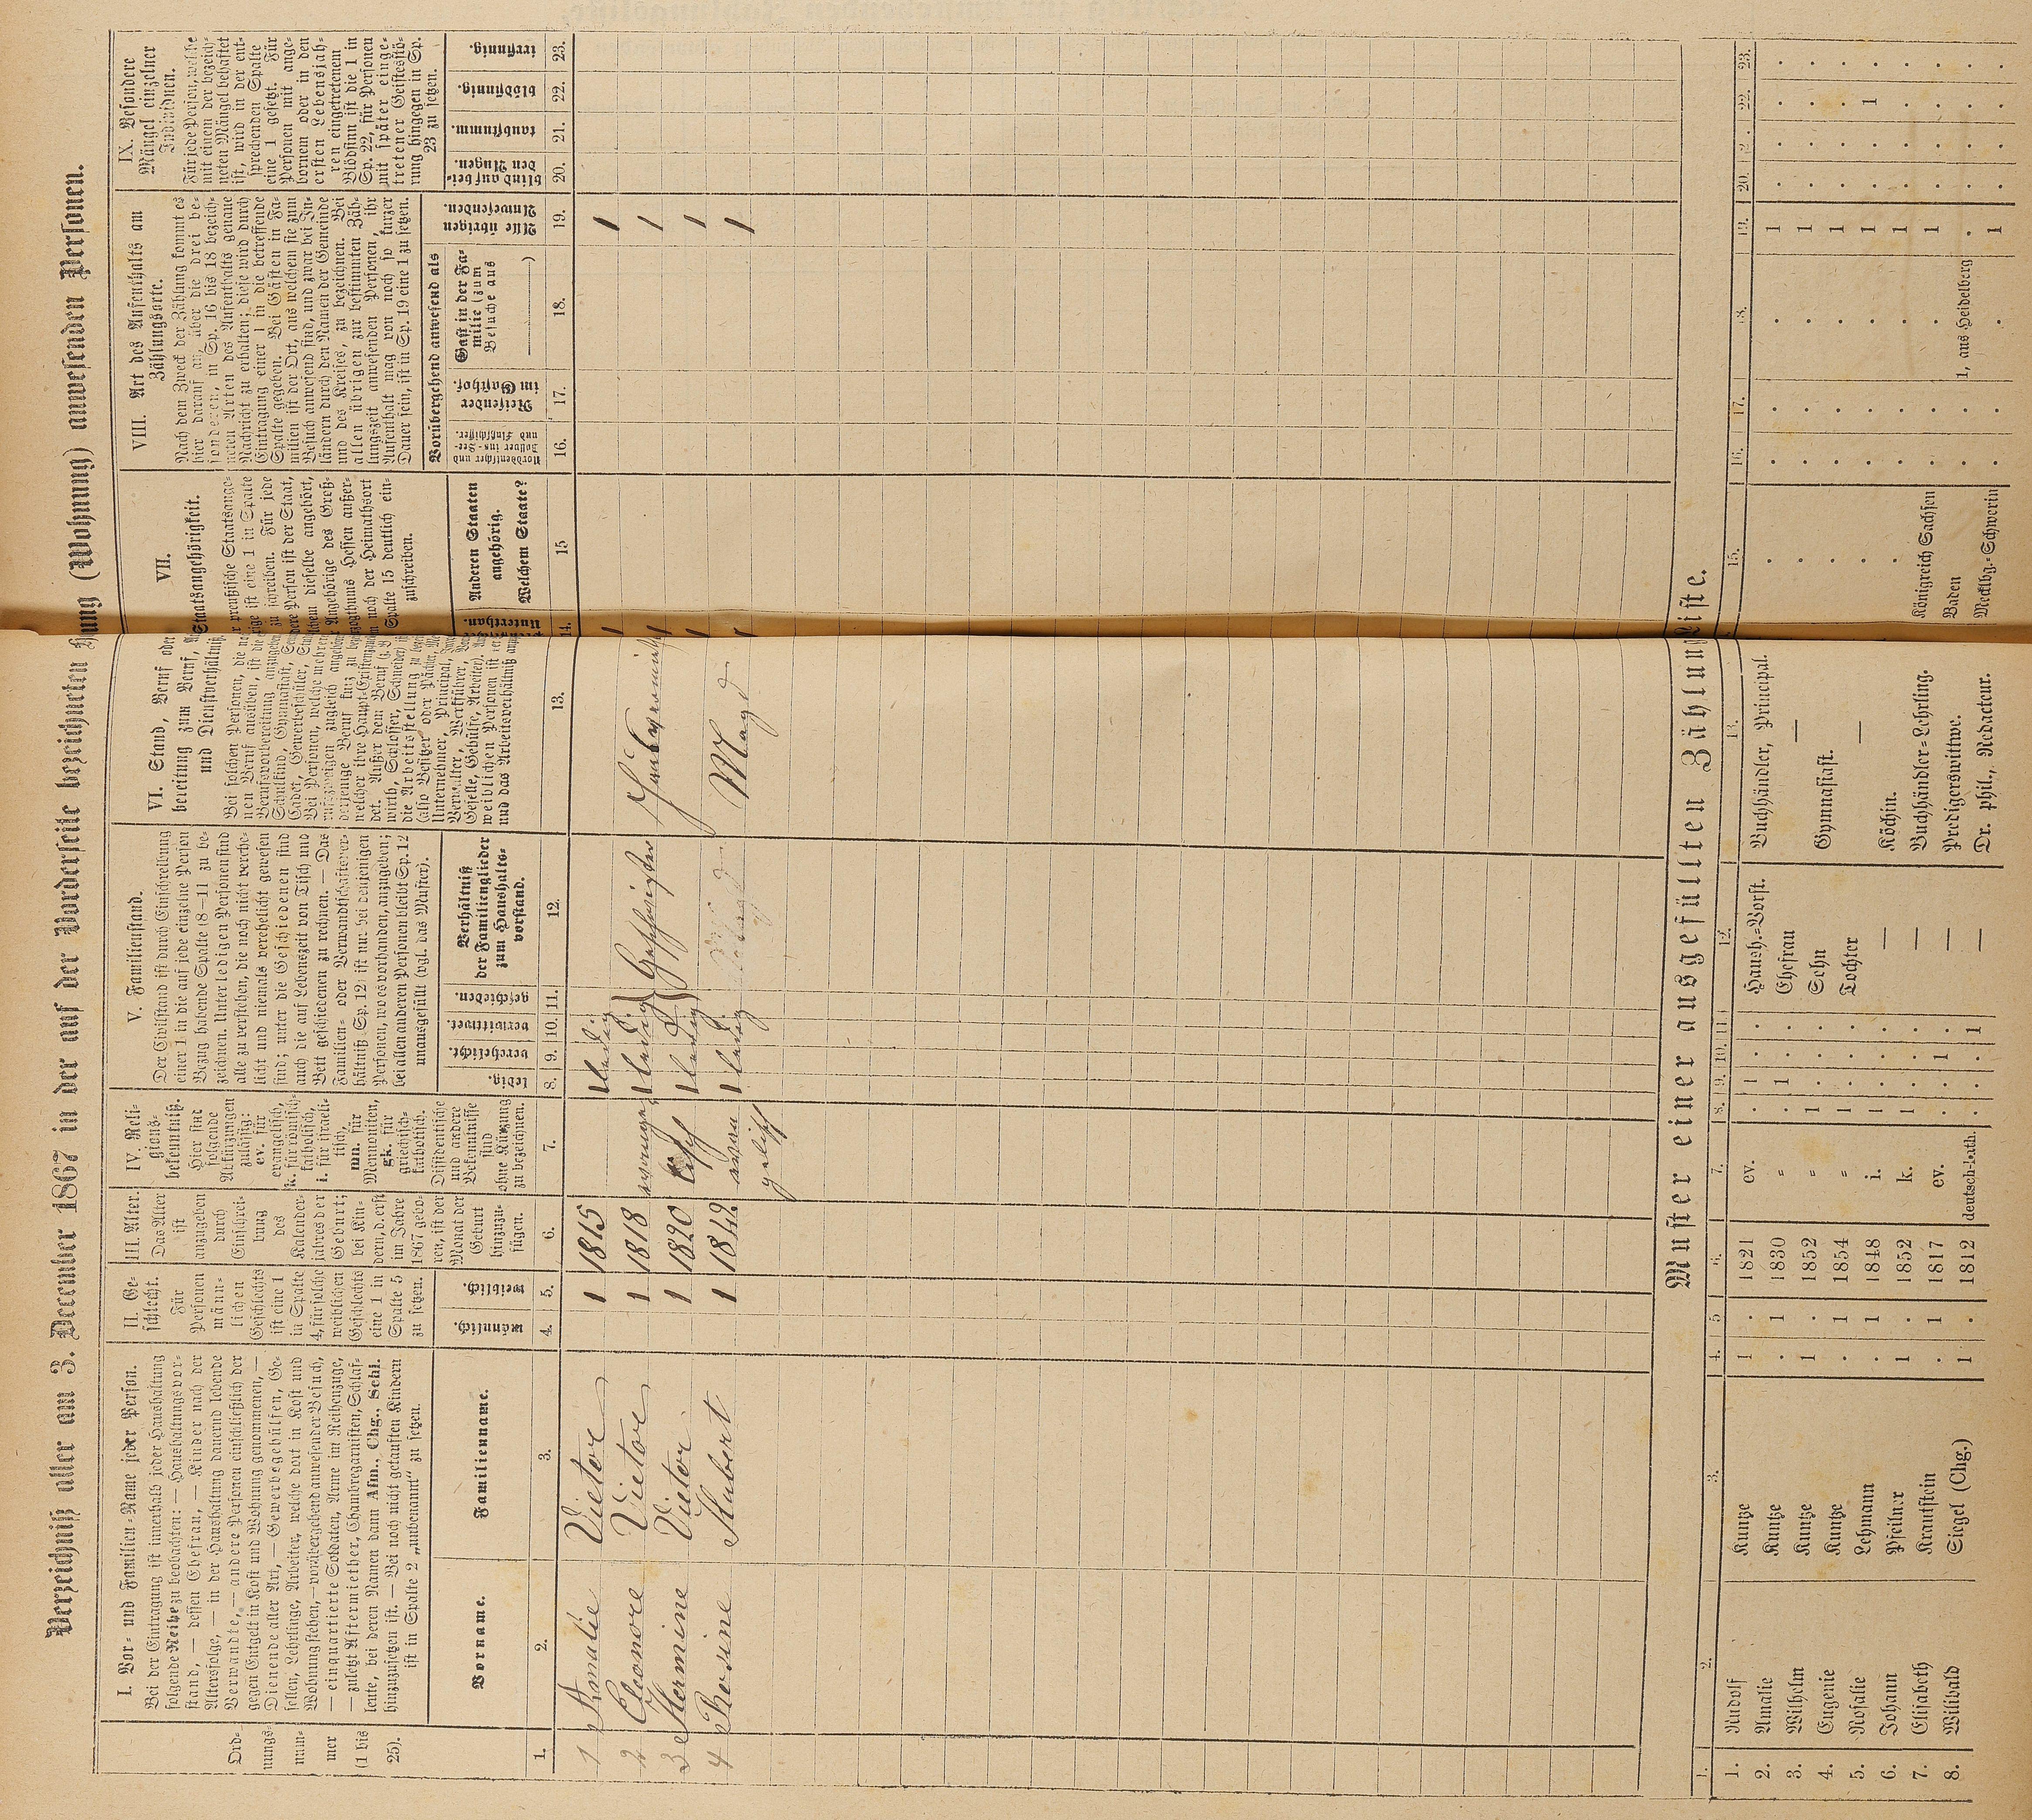 Verzeichniß aller am 3. December 1867 in der auf der Vorderseite bezeichneten Wohnung (Wohnung) anwesenden Personen.
I. Vor- und Familien-Name jeder Person.
Bei der Eintragung ist innerhalb jeder Haushaltung
folgende Reihe zu beobachten: — Haushaltungsvor-
stand, — dessen Ehefrau, — Kinder nach der
Altersfolge, — in der Haushaltung dauernd lebende
Verwandte, — andere Personen einschließlich der
gegen Entgelt in Kost und Wohnung genommenen, —
Dienende aller Art, — Gewerbsgehülfen, Ge-
sellen, Lehrlinge, Arbeiter, welche dort in Kost und
Wohnung stehen, — vorübergehend anwesender Besuch,
— einquartierte Soldaten, Arme im Reihenzuge,
— zuletzt Aftermiether, Chambregarnisten, Schlaf-
leute, bei deren Namen dann Afm., Chg., Schl.
hinzuzusetzen ist. — Bei noch nicht getauften Kindern
ist in Spalte 2 „unbenannt" zu setzen.
Ord-
nungs-
num-
mer
(1 bis
25).
Vorname.
Familienname.
II. Ge-
schlecht.
Für
Personen
männ-
lichen
Geschlechts
ist eine 1
in Spalte
4, für solche
weiblichen
Geschlechts
eine 1 in
Spalte 5
zu setzen.
männlich.
weiblich.
III. Alter.
Das Alter
ist
anzugeben
durch
Einschrei-
bung
des
Kalender-
jahres der
Geburt;
bei Kin-
dern, d. erst
im Jahre
1867 gebo-
ren, ist der
Monat der
Geburt
hinzuzu-
fügen.
IV. Reli-
gions-
bekenntniß.
Hier sind
folgende
Abkürzungen
zulässig:
ev. für
evangelisch,
k. für römisch-
katholisch,
i. für israeli-
tisch,
mn. für
Mennoniten,
gk. für
griechisch-
katholisch.
Dissidentische
und andere
Bekenntnisse
sind
ohne Kürzung
zu bezeichnen.
V. Familienstand.
Der Civilstand ist durch Einschreibung
einer 1 in die auf jede einzelne Person
Bezug habende Spalte (8—11) zu be-
zeichnen. Unter ledigen Personen sind
alle zu verstehen, die noch nicht verehe-
licht und niemals verehelicht gewesen
sind; unter die Geschiedenen sind
auch die auf Lebenszeit von Tisch und
Bett geschiedenen zu rechnen. — Das
Familien- oder Verwandtschaftsver-
hältniß Sp. 12 ist nur bei denjenigen
Personen, wo es vorhanden, anzugeben;
bei allen anderen Personen bleibt Sp. 12
unausgefüllt (vgl. das Muster).
ledig.
verehelicht.
verwittwet.
geschieden.
Verhältniß
der Familienglieder
zum Haushalts-
vorstand.
VI. Stand, Beruf oder
bereitung zum Beruf,
und Dienstverhältniß
Bei solchen Personen, die
nen Beruf ausüben, ist die
Berufsvorbereitung anzugeben
Schulkind, Gymnasiast,
Cadet, Gewerbeschüler,
Bei Personen, welche mehrere
zweigen zugleich
welcher ihre Haupt-Existenz
derjenige Beruf kurz zu
det. Außer dem Beruf
wirth, Schlosser, Schneider)
die Arbeitsstellung zu
(also Besitzer oder Pächter,
Unternehmer, Principal,
Verwalter, Werkführer,
Geselle, Gehülfe, Arbeiter).
weiblichen Personen ist
und das Arbeitsverhältniß
VII.
Staatsangehörigkeit.
preußische Staatsange-
ist eine 1 in Spalte
zu schreiben. Für jede
Person ist der Staat,
dieselbe angehört,
Angehörige des Groß-
herzogthums Hessen außer-
noch der Heimathsort
Spalte 15 deutlich ein-
zuschreiben.
Unterthan.
Anderen Staaten
angehörig.
Welchem Staate?
VIII. Art des Aufenthalts am
Zählungsorte.
Nach dem Zweck der Zählung kommt es
hier darauf an, über die drei be-
sonderen, in Sp. 16 bis 18 bezeich-
neten Arten des Aufenthalts genaue
Nachricht zu erhalten; diese wird durch
Eintragung einer 1 in die betreffende
Spalte gegeben. Bei Gästen in Fa-
milien ist der Ort, aus welchem sie zum
Besuch anwesend sind, und zwar bei In-
ländern durch den Namen der Gemeinde
und des Kreises, zu bezeichnen. Bei
allen übrigen zur bestimmten Zäh-
lungszeit anwesenden Personen, ihr
Aufenthalt mag von noch so kurzer
Dauer sein, ist in Sp. 19 eine 1 zu setzen.
Vorübergehend anwesend als
Norddeutscher und
Zollver-
und Flußschiffer.
Reisender
im Gasthof.
Gast in der Fa-
milie (zum
Besuche aus
)
Alle übrigen
Anwesenden.
IX. Besondere
Mängel einzelner
Individuen.
Für jede Person, welche
mit einem der bezeich-
neten Mängel behaftet
ist, wird in der ent-
sprechenden Spalte
eine 1 gesetzt. Für
Personen mit ange-
bornem oder in den
ersten Lebensjah-
ren eingetretenem
Blödsinn ist die 1 in
Sp. 22, für Personen
mit später einge-
tretener Geistesstö-
rung hingegen in Sp.
23 zu setzen.
blind auf bei-
den Augen.
taubstumm.
blödsinnig.
irrsinnig.
1. 2. 3. 4. 5. 6. 7. 8. 9. 10. 11. 12. 13. 14. 15 16. 17. 18. 19. 20. 21. 22. 23.
1 Amalie Vietor 1 1815 1 ledig 1 1
2 Eleonore Vietor 1 1818 1 ledig Geschwister 1 1
3 Hermine Vietor 1 1820 1 ledig 1 1
4 Rosine Stubert 1 1842 evan 1 ledig Magd 1 1
gelisch
Muster einer ausgefüllten Zählungsliste.
1. 2. 3. 4. 5 6. 7. 8. 9. 10. 11. 12. 13. 15. 16. 17. 18. 19. 20. 22. 23.
1. Rudolf Kuntze 1 . 1821 ev. . 1 . . Haush.-Vorst. Buchhändler, Principal. . . . . 1 . . . .
2. Amalie Kuntze . 1 1830 " . 1 . . Ehefrau — . . . . 1 . . . .
3. Wilhelm Kuntze 1 . 1852 " 1 . . . Sohn Gymnasiast. . . . . 1 . . . .
4. Eugenie Kuntze . 1 1854 " 1 . . . Tochter — . . . . 1 . . 1 .
5. Rosalie Lehmann . 1 1848 i. 1 . . . — Köchin. . . . . 1 . . . .
6. Johann Pfeilner 1 . 1852 k. 1 . . . — Buchhändler-Lehrling. Königreich Sachsen . . . 1 . . . .
7. Elisabeth Krautstein . 1 1817 ev. . . 1 . — Predigerswittwe. Baden . . 1, aus Heidelberg . . . . .
8. Wilibald Siegel (Chg.) 1 . 1812 deutsch-kath. . . . 1 — Dr. phil., Redacteur. Mecklbg.-Schwerin . . . 1 . . . .